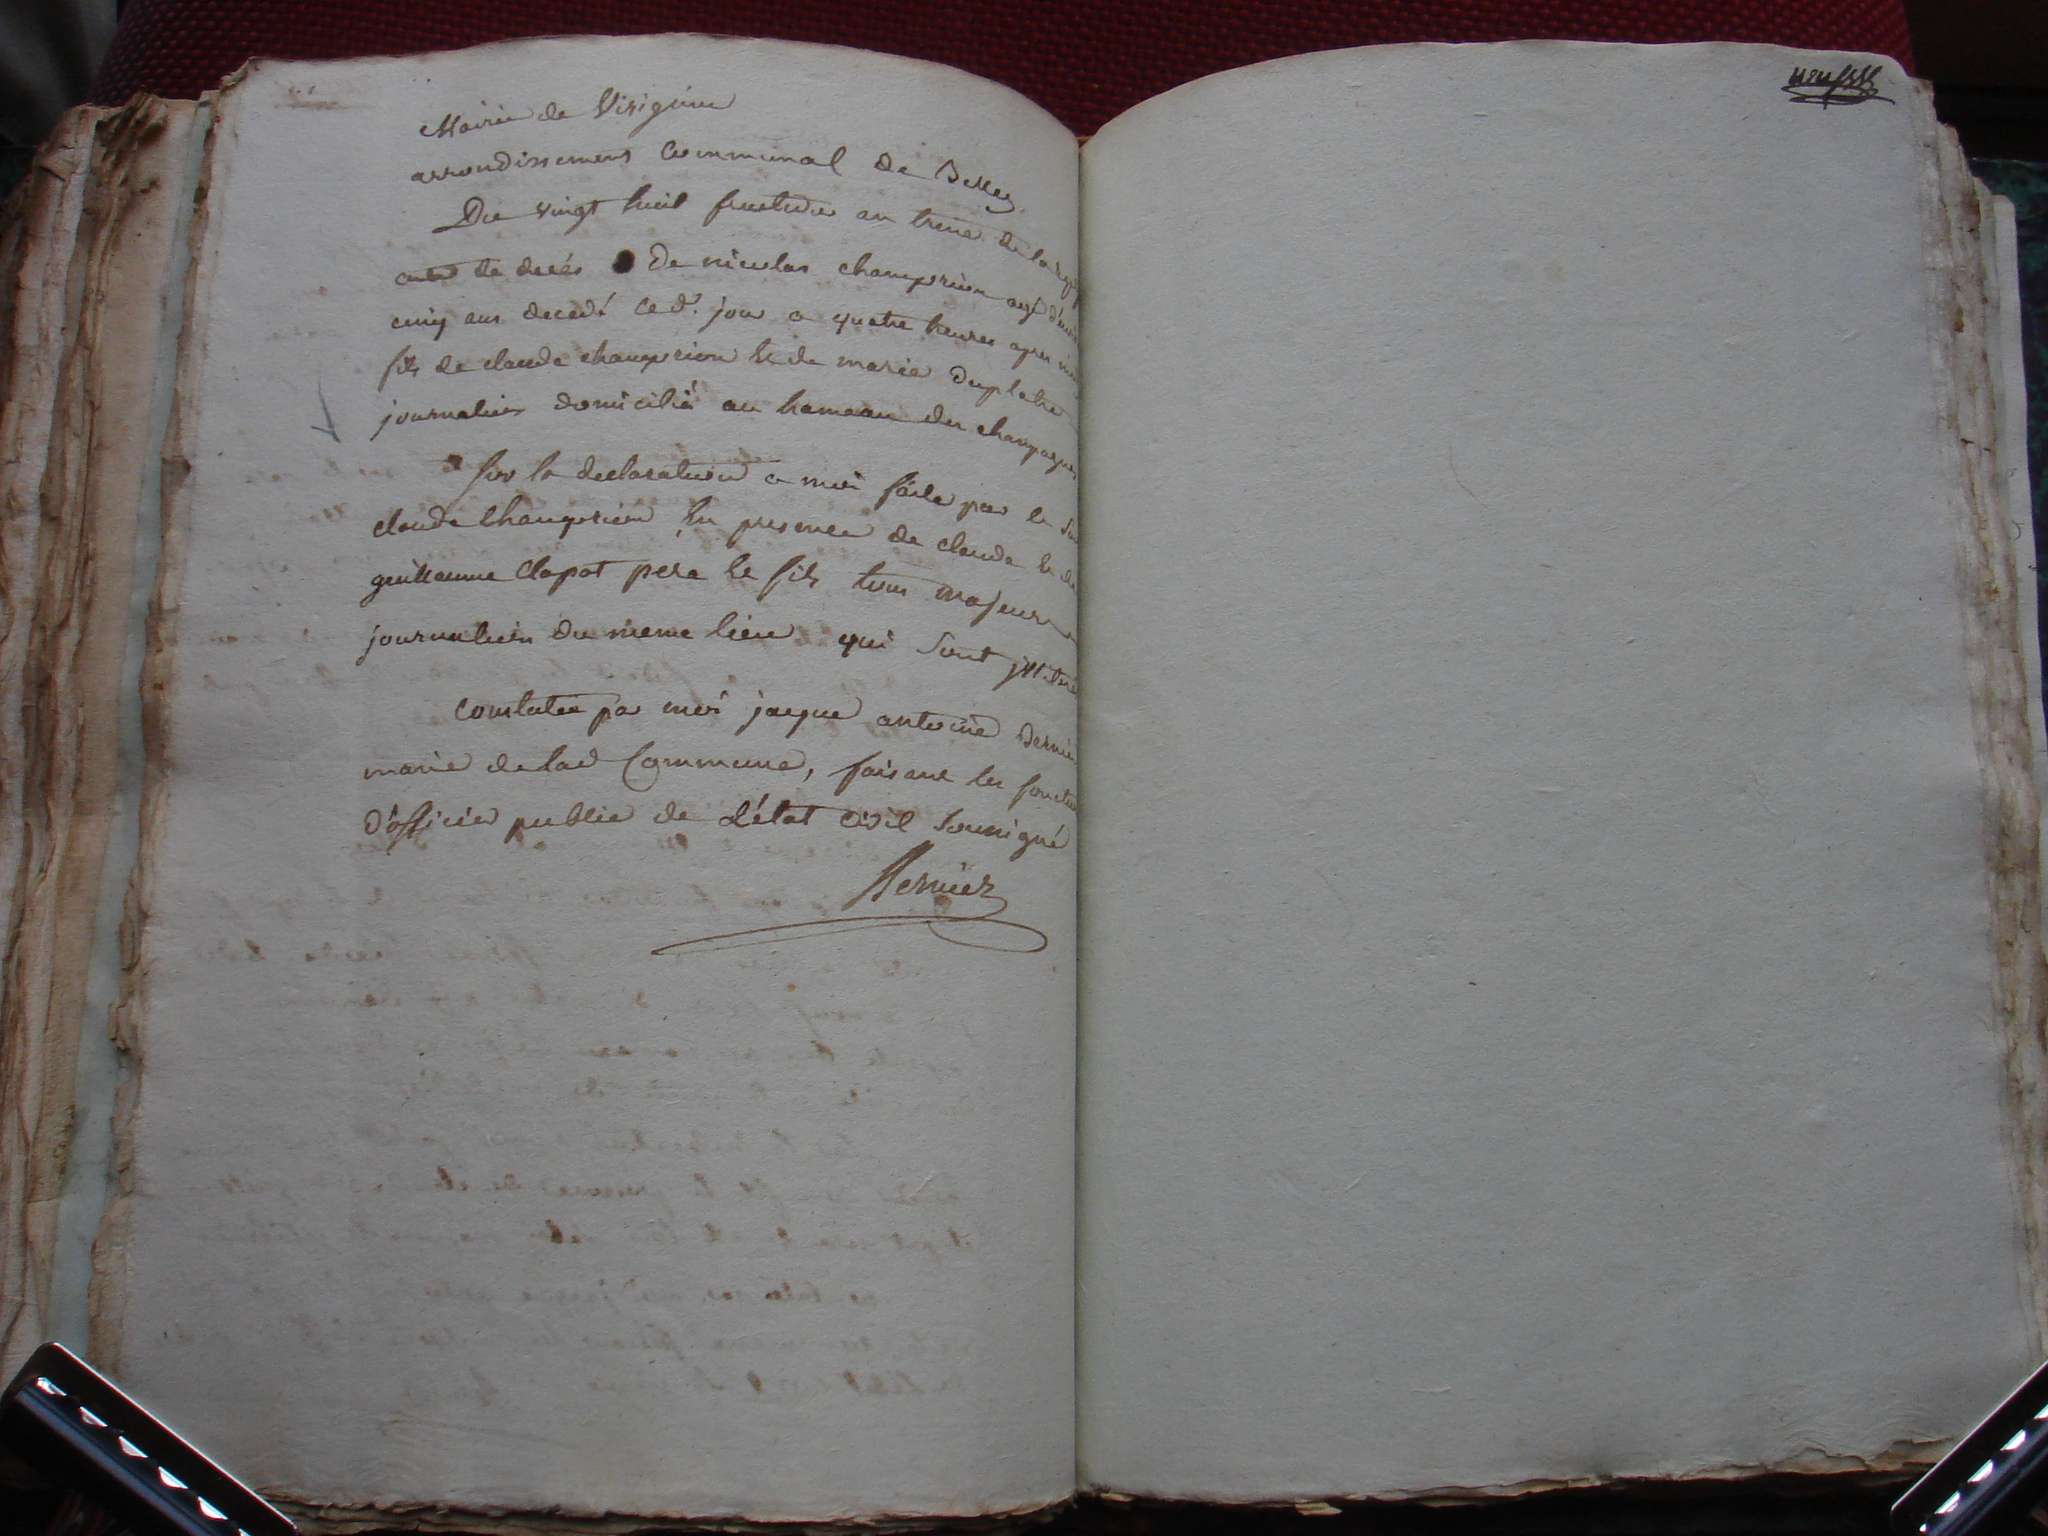 Mairie de Virignin
arrondissement Communal de Belley
Du vingt huit fructidor an treize de la rep
acte de décés de nicolas champrion agé d'environ
cinq ans decedé ce d.t jour a quatre heures apres midi
fils de claude champrion & de marie duplatre
journalier domicilié au hameau des champagnes
Sur la declaration a moi faite par le
claude champrion En presence de claude & de
guillaume Clapot pere & fils tous majeurs
journaliers du meme lieu qui sont illiteré
constatée par moi jaque antoine Bernier
maire de lad Commune, faisant les fonctio
d'officier public de l'état civil soussigné
Bernier